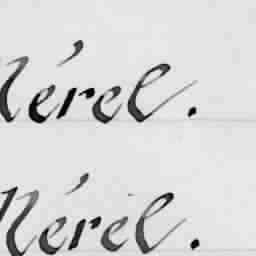 Nérel.
Nérel.